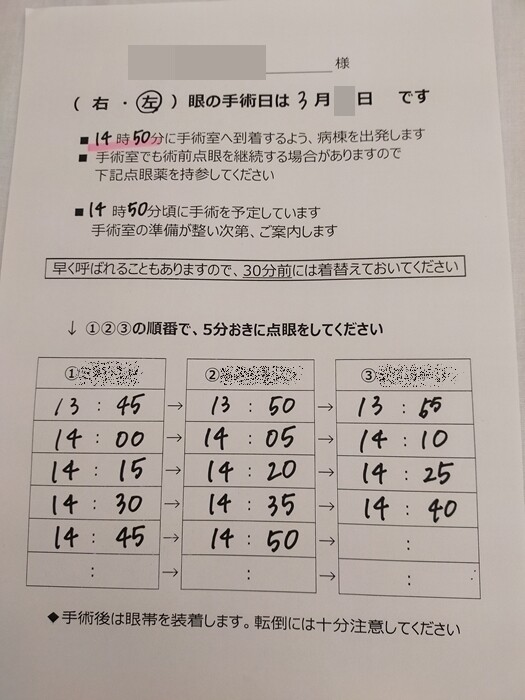 様
（ 右 ・ 左 ）眼の手術日は 3 月 日 です
■ 14 時 50分に手術室へ到着するよう、病棟を出発します
■ 手術室でも術前点眼を継続する場合がありますので
下記点眼薬を持参してください
■ 14 時 50分頃に手術を予定しています
手術室の準備が整い次第、ご案内します
早く呼ばれることもありますので、30分前には着替えておいてください
↓ ①②③の順番で、5分おきに点眼をしてください
① ② ③
13 : 45 → 13 : 50 → 13 : 55
14 : 00 → 14 : 05 → 14 : 10
14 : 15 → 14 : 20 → 14 : 25
14 : 30 → 14 : 35 → 14 : 40
14 : 45 → 14 : 50 → :
: → : → :
◆手術後は眼帯を装着します。転倒には十分注意してください